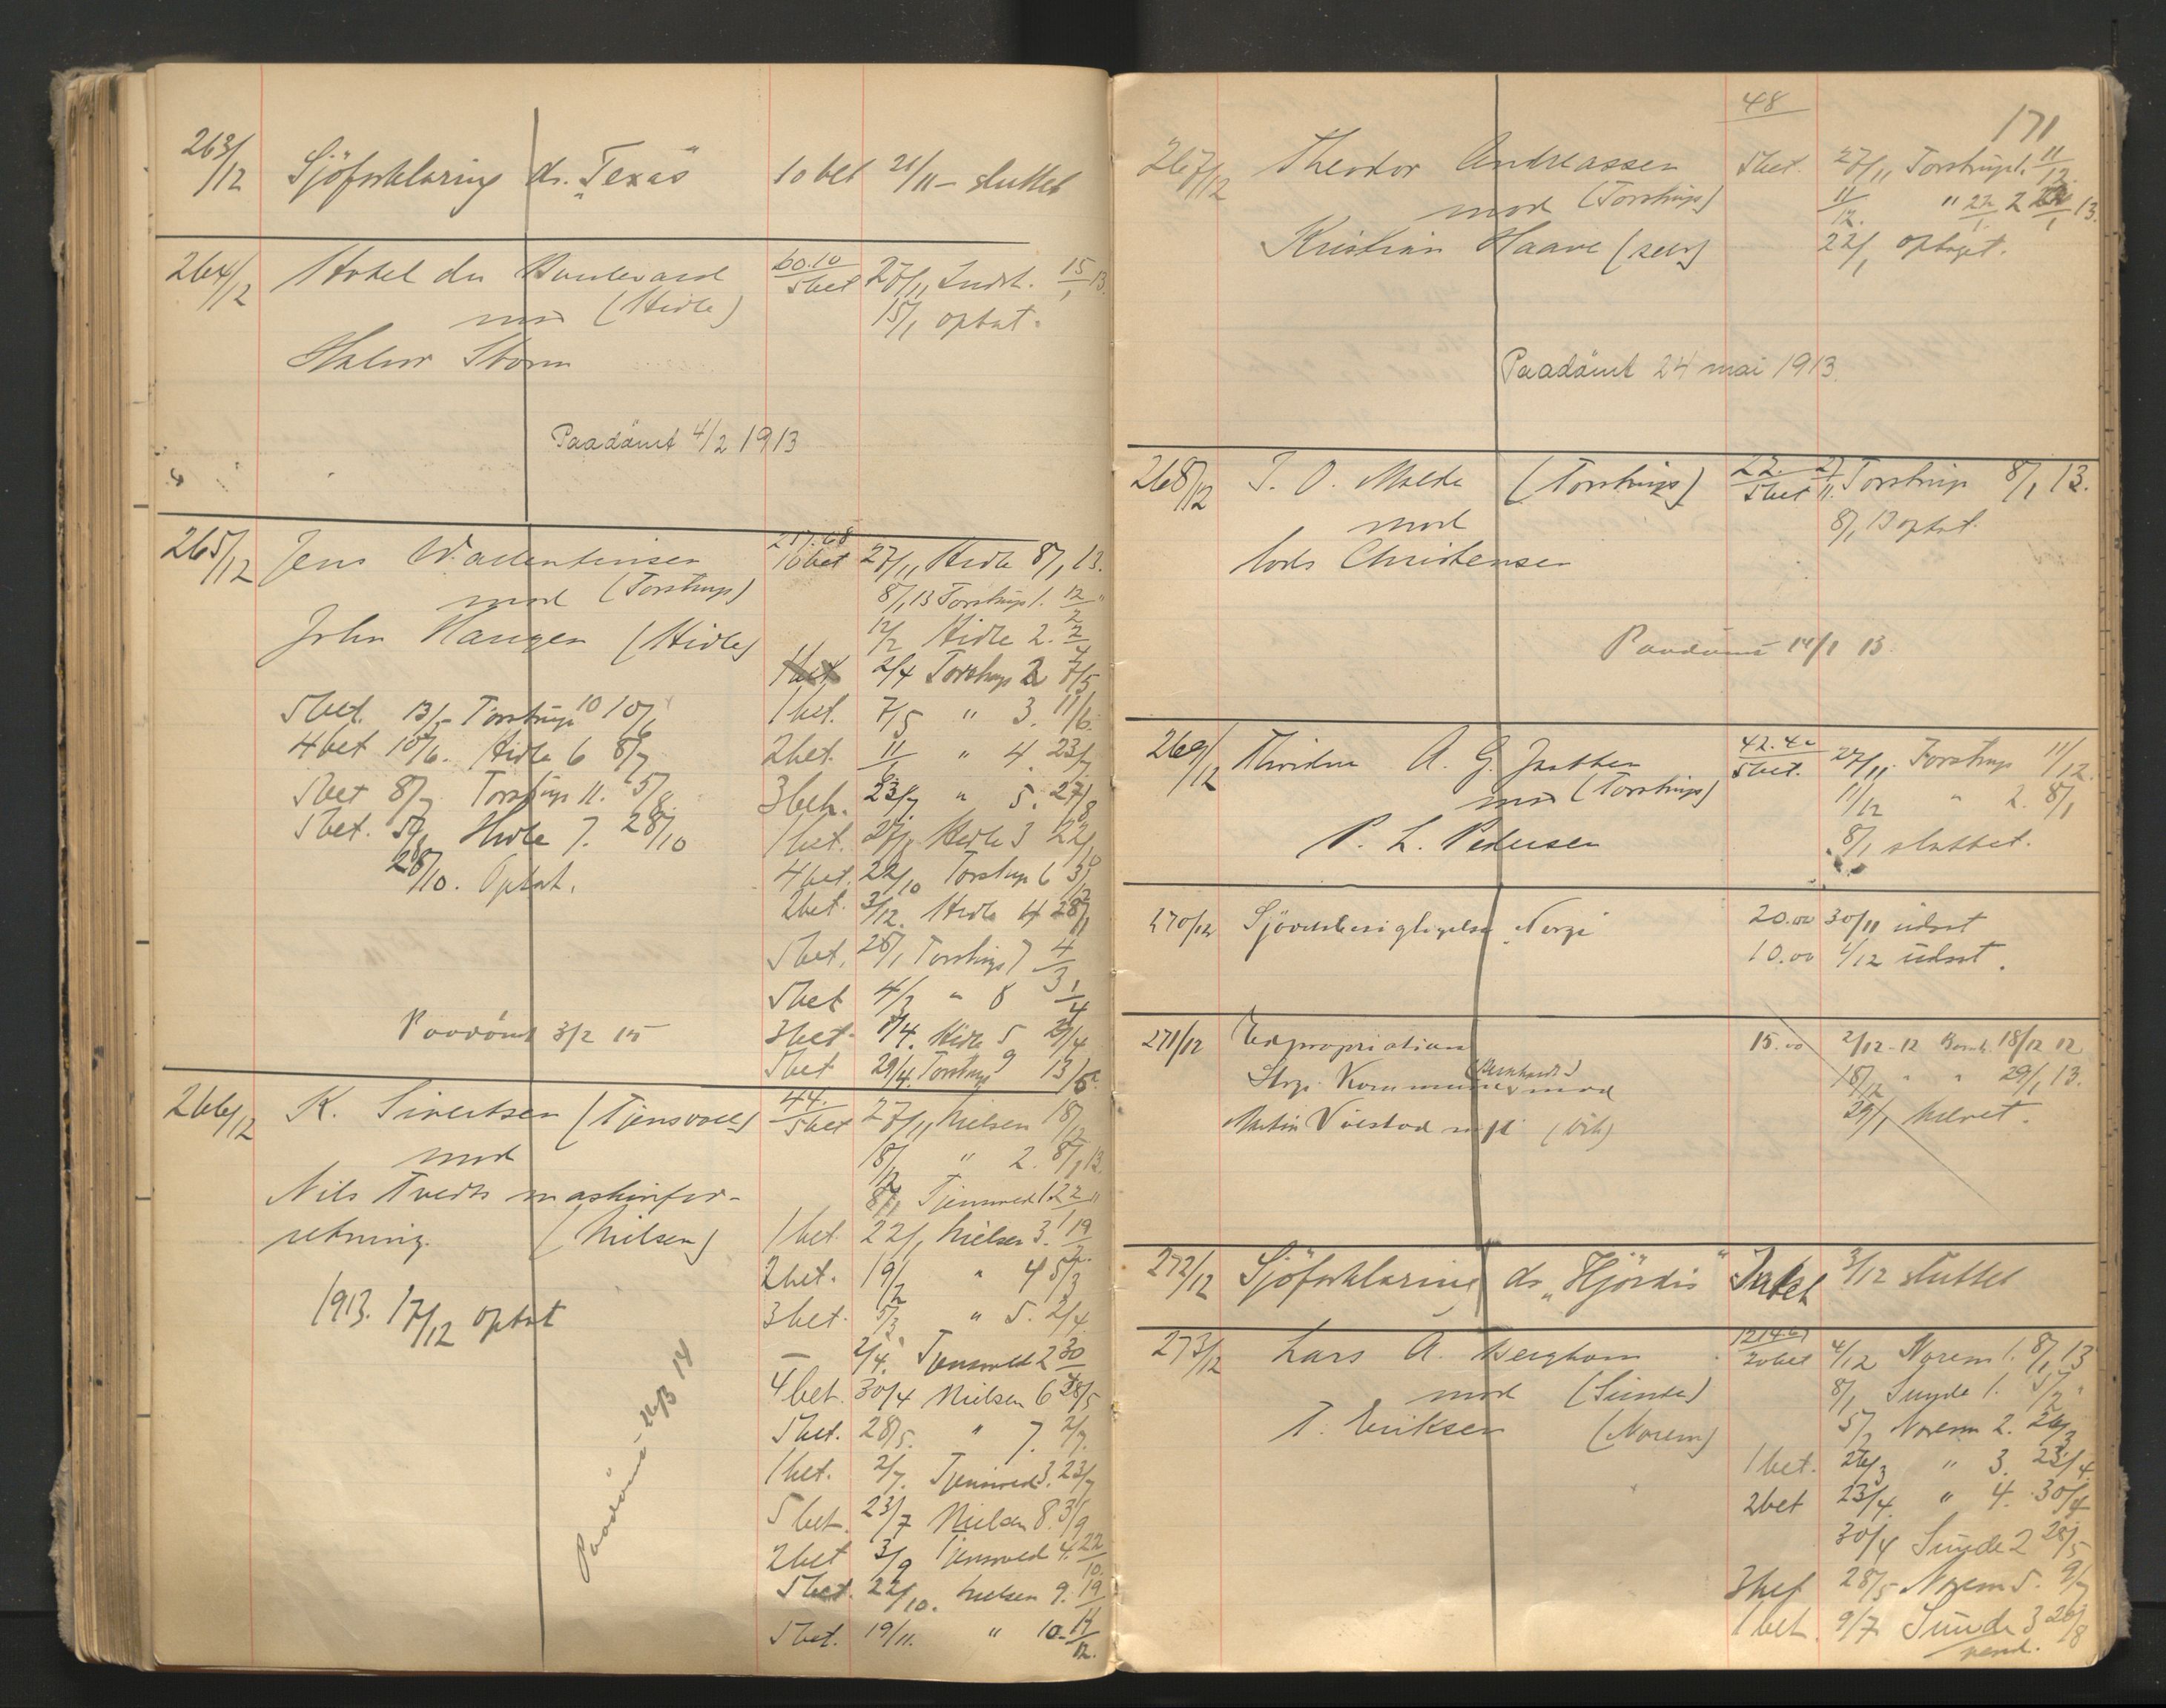 263/12 Sjöforklaring ds. "Texas" 10 bet 21/11 - sluttet
264/12 Hotel du Boulevard 60.10 5 bet 27/11 Indst. 15/1 13.
mod (Hidle) 15/1 optat.
Halvor Storm
Paadömt 4/2 1913
265/12 Jens Wallentinsen 10 bet 27/11 Hidle 8/1 13.
mod (Torstrup) 8/1 13 Torstrup 1. 12/2 "
John Haugen (Hidle) 12/2 Hidle 2. 2/4
2/4 Torstrup 2 7/5
5 bet. 13/5 Torstrup 10 10/6 1 bet. 7/5 " 3. 11/6
4 bet 10/6. Hidle 6 8/7 2 bet. 11/6 " 4. 23/7
5 bet 8/7 Torstrup 11. 5/8 3 bet. 23/7 " 5. 27/8
5 bet. 5/8 Hidle 7. 28/10 1 bet. 27/8 Hidle 3 22/10
28/10. Optat. 4 bet. 22/10 Torstrup 6 3/12
2 bet. 3/12. Hidle 4 28/1
5 bet. 28/1 Torstrup 7 4/3
5 bet 4/3 " 8 1/4
Paadömt 3/2 15 3 bet. 1/4. Hidle 5 29/4
5 bet 29/4. Torstrup 9 13/5
266/12 K. Sivertsen (Tjensvold) 44. 5 bet 27/11 Nielsen 18/12
mod 18/12 " 2. 8/1 13.
Nils Tvedts maskinfor- 8/1 Tjensvold 1. 22/1 "
retning. (Nielsen) 1 bet 22/1 Nielsen 3. 19/2.
2 bet. 19/2 " 4 5/3
1913. 17/12 optat 3 bet. 5/3 " 5. 2/4
2/4. Tjensvold 2 30/4
4 bet. 30/4 Nielsen 6 28/5
5 bet. 28/5. " 7. 2/7.
1 bet. 2/7. Tjensvold 3. 23/7
5 bet. 23/7 Nielsen 8. 3/9
2 bet 3/9 Tjensvold 4. 22/10.
5 bet. 22/10. Nielsen 9. 19/11
5 bet. 19/11. " 10. 17/12.
Paadömt 14
48
171
267/12 Theodor Andreassen 5 bet. 27/11 Torstrup 1. 11/12.
mod (Torstrup) 11/12. " 2 22/1 13.
Kristian Haave (selv) 22/1 optaget.
Paadömt 24 mai 1913.
268/12 T. O. Malde (Torstrup) 22. 5 bet 27/11. Torstrup 8/1 13.
mod 8/1 13 optat.
Lods Christensen
Paadömt 14/1 13.
269/12 A. G. 42.40 5 bet. 27/11. Torstrup 11/12.
mod (Torstrup) 11/12 " 2. 8/1
P. L. Pedersen 8/1 sluttet.
270/12 Norge 20.00 30/11 udsst
10.00 4/12 udsst.
271/12 Expropriation 15.00 2/12-12 18/12 12
Kommune (Bernhardt) mod 18/12 " " 29/1 13.
Martin 29/1 hævet.
272/12 Sjöforklaring ds. "Hjördis" 3/12 sluttet
273/12 Lars A. Berghom 20 bet 4/12 Norem 1. 8/1 13
mod (Sunde) 8/1 Sunde 1. 5/2 "
T. Eriksen (Norem) 5/2 Norem 2. 26/3
1 bet. 26/3 " 3. 23/4.
2 bet 23/4. " 4. 30/4
30/4 Sunde 2 28/5
3 bet 28/5 Norem 5. 9/7
1 bet. 9/7 Sunde 3 20/8
vend.